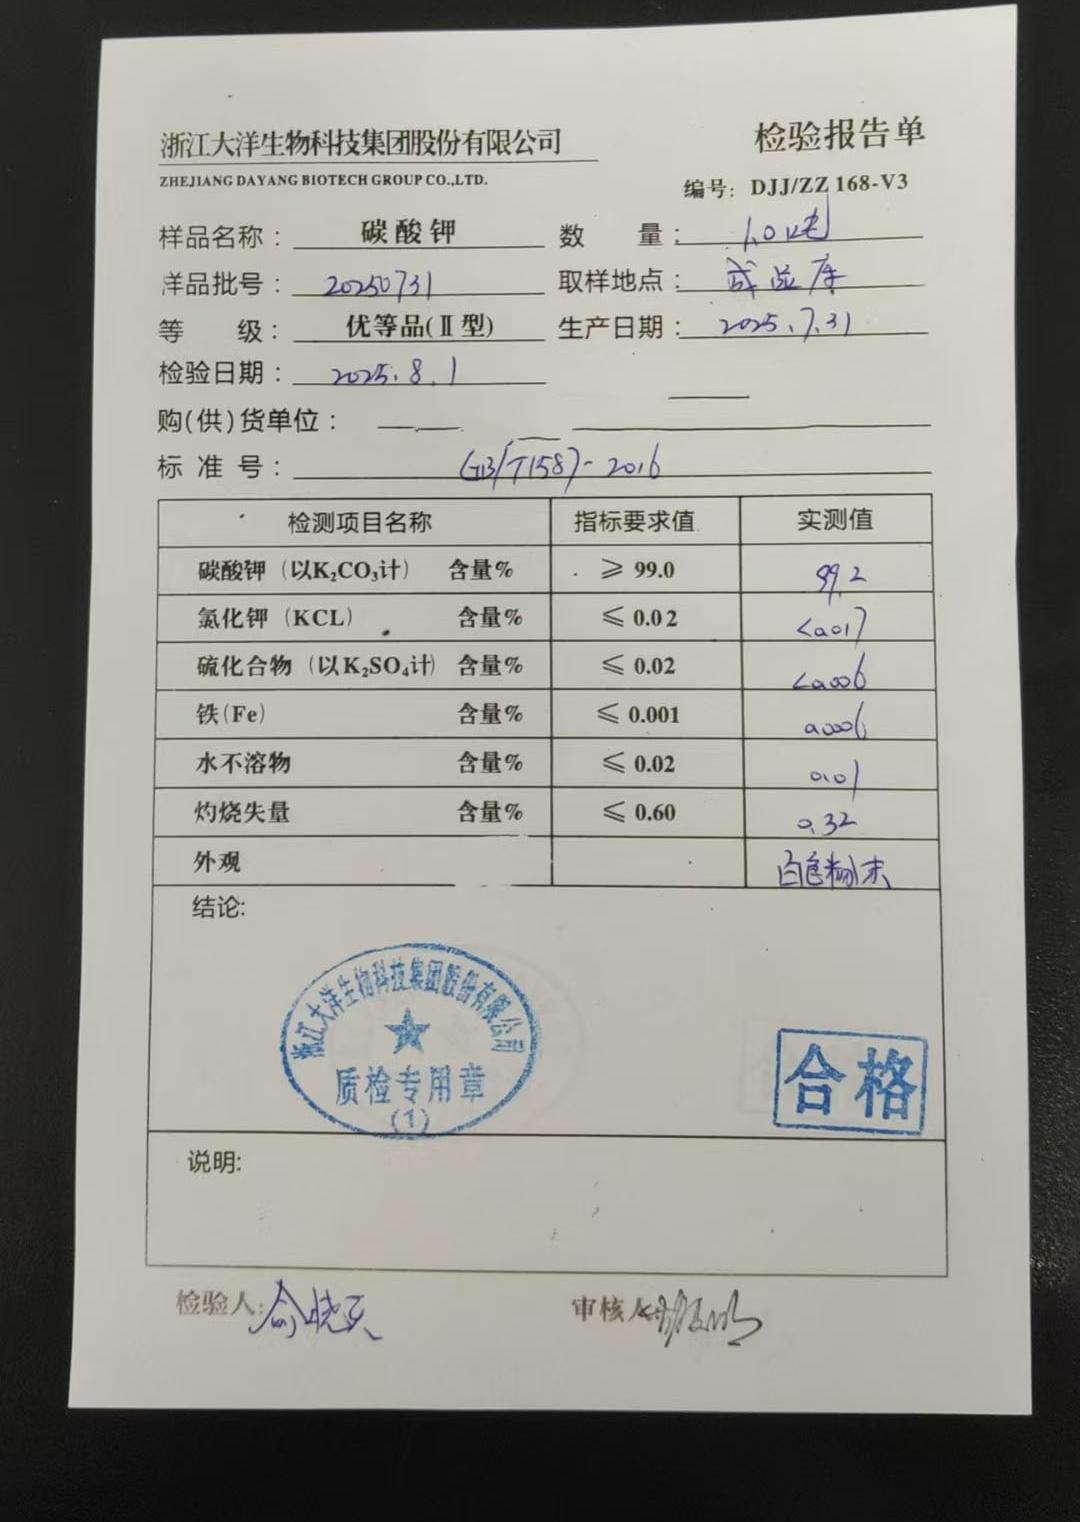 浙江大洋生物科技集团股份有限公司
检验报告单
ZHEJIANG DAYANG BIOTECH GROUP CO.,LTD.
编号: DJJ/ZZ 168-V3
样品名称: 碳酸钾 数 量: 1.0吨
洋品批号: 20250731 取样地点: 成品库
等 级: 优等品(Ⅱ型) 生产日期: 2025.7.31
检验日期: 2025.8.1
购(供)货单位:
标准号: GB/T1587-2016
检测项目名称 指标要求值 实测值
碳酸钾（以K₂CO₃计） 含量% ≥ 99.0 99.2
氯化钾（KCL） 含量% ≤ 0.02 <0.017
硫化合物（以K₂SO₄计） 含量% ≤ 0.02 <0.006
铁(Fe) 含量% ≤ 0.001 0.0006
水不溶物 含量% ≤ 0.02 0.01
灼烧失量 含量% ≤ 0.60 0.32
外观 白色粉末
结论:
浙江大洋生物科技集团股份有限公司
质检专用章
(1)
合格
说明:
检验人: 审核人